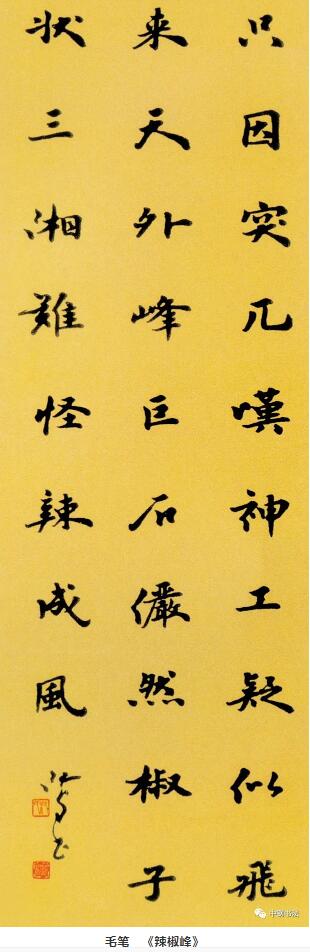 只因突兀嘆神工疑似飛
来天外峰巨石儼然椒子
状三湘難怪辣成風
中钢书院
毛笔 《辣椒峰》